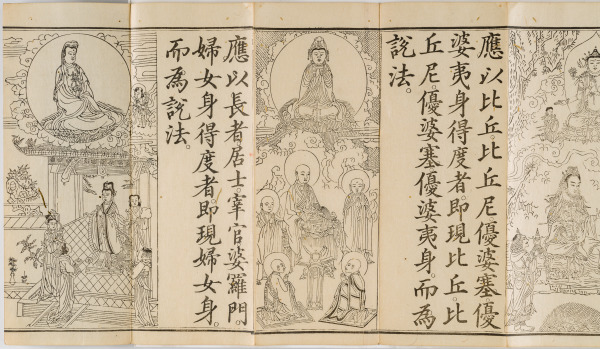 應以比丘比丘尼優婆塞優
婆夷身得度者。即現比丘。比
丘尼。優婆塞優婆夷身。而為
說法。
應以長者居士。宰官婆羅門。
婦女身得度者。即現婦女身。
而為說法。